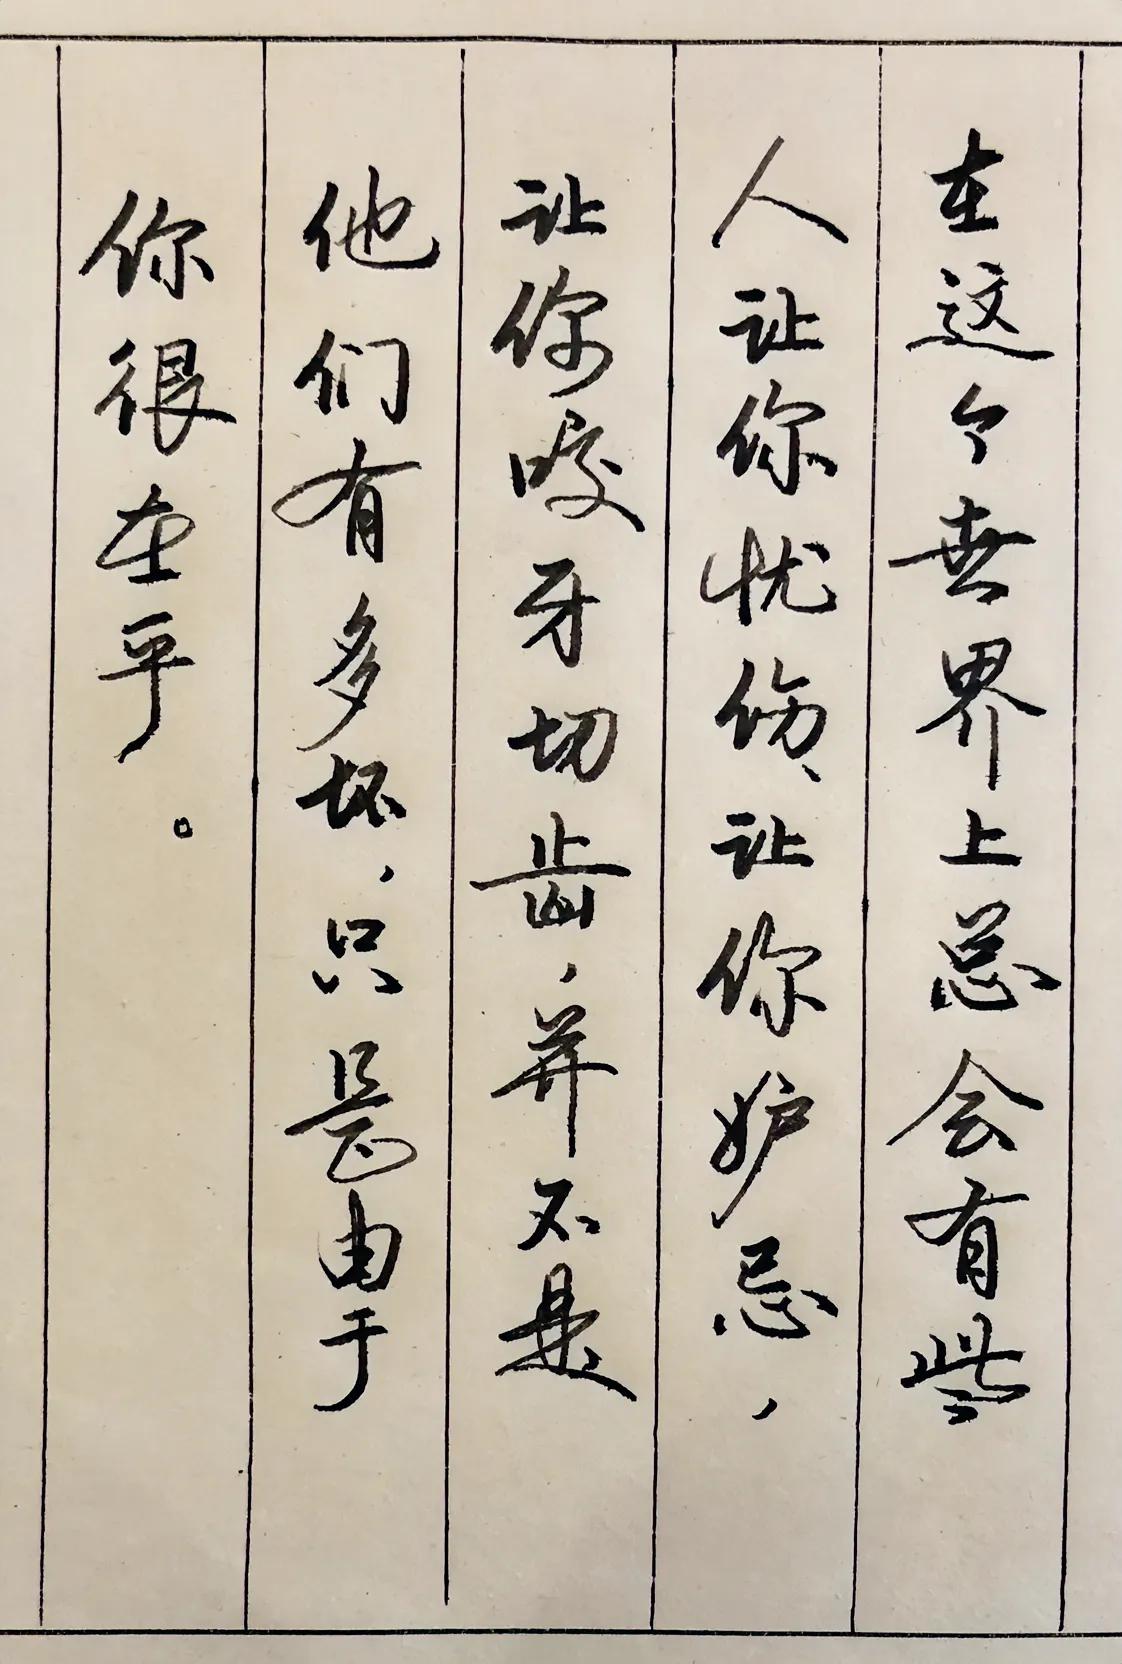 在这个世界上总会有些
人让你忧伤、让你妒忌，
让你咬牙切齿，并不是
他们有多坏，只是由于
你很在乎。